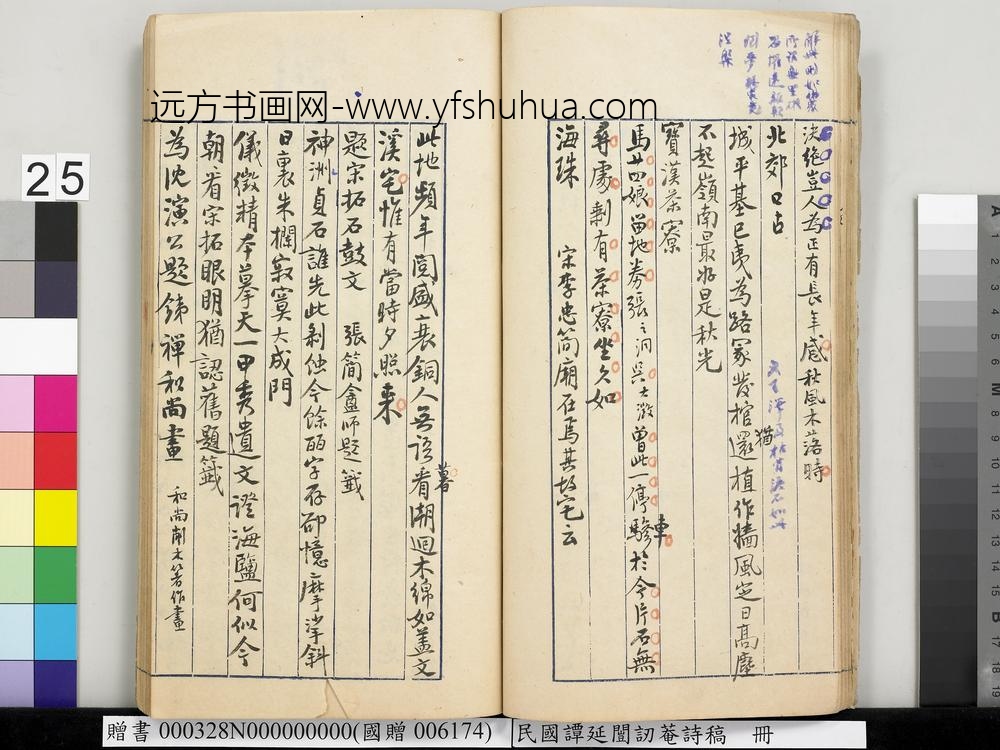 決絕豈人為正有長年感秋風木落時
北郊口占
城平基已夷為路冢發棺還植作牆風定日高塵
猶
不起嶺南最好是秋光
寶漢茶寮
馬廿四娘留地券張之洞吳大澂曾此一停驂於今片石無
車
尋處剩有茶寮坐久如
海珠 宋李忠簡廟在焉其故宅云
此地頻年閱盛衰銅人無語看潮迴木綿如蓋文
暮
溪宅惟有當時夕照來
題宋拓石鼓文 張簡盦師題籤
神洲貞石誰先此剝蝕今餘字存卻憶摩挲斜
日裏朱欄寂寞大成門
儀徵精本摹天一甲秀遺文證海鹽何似今
朝看宋拓眼明猶認舊題籤
為沈演公題銻禪和尚畫 和尚削木箸作畫
远方书画网-www.yfshuhua.com
25
贈書 000328N000000000(國贈 006174) 民國譚延闓訒菴詩稿 冊